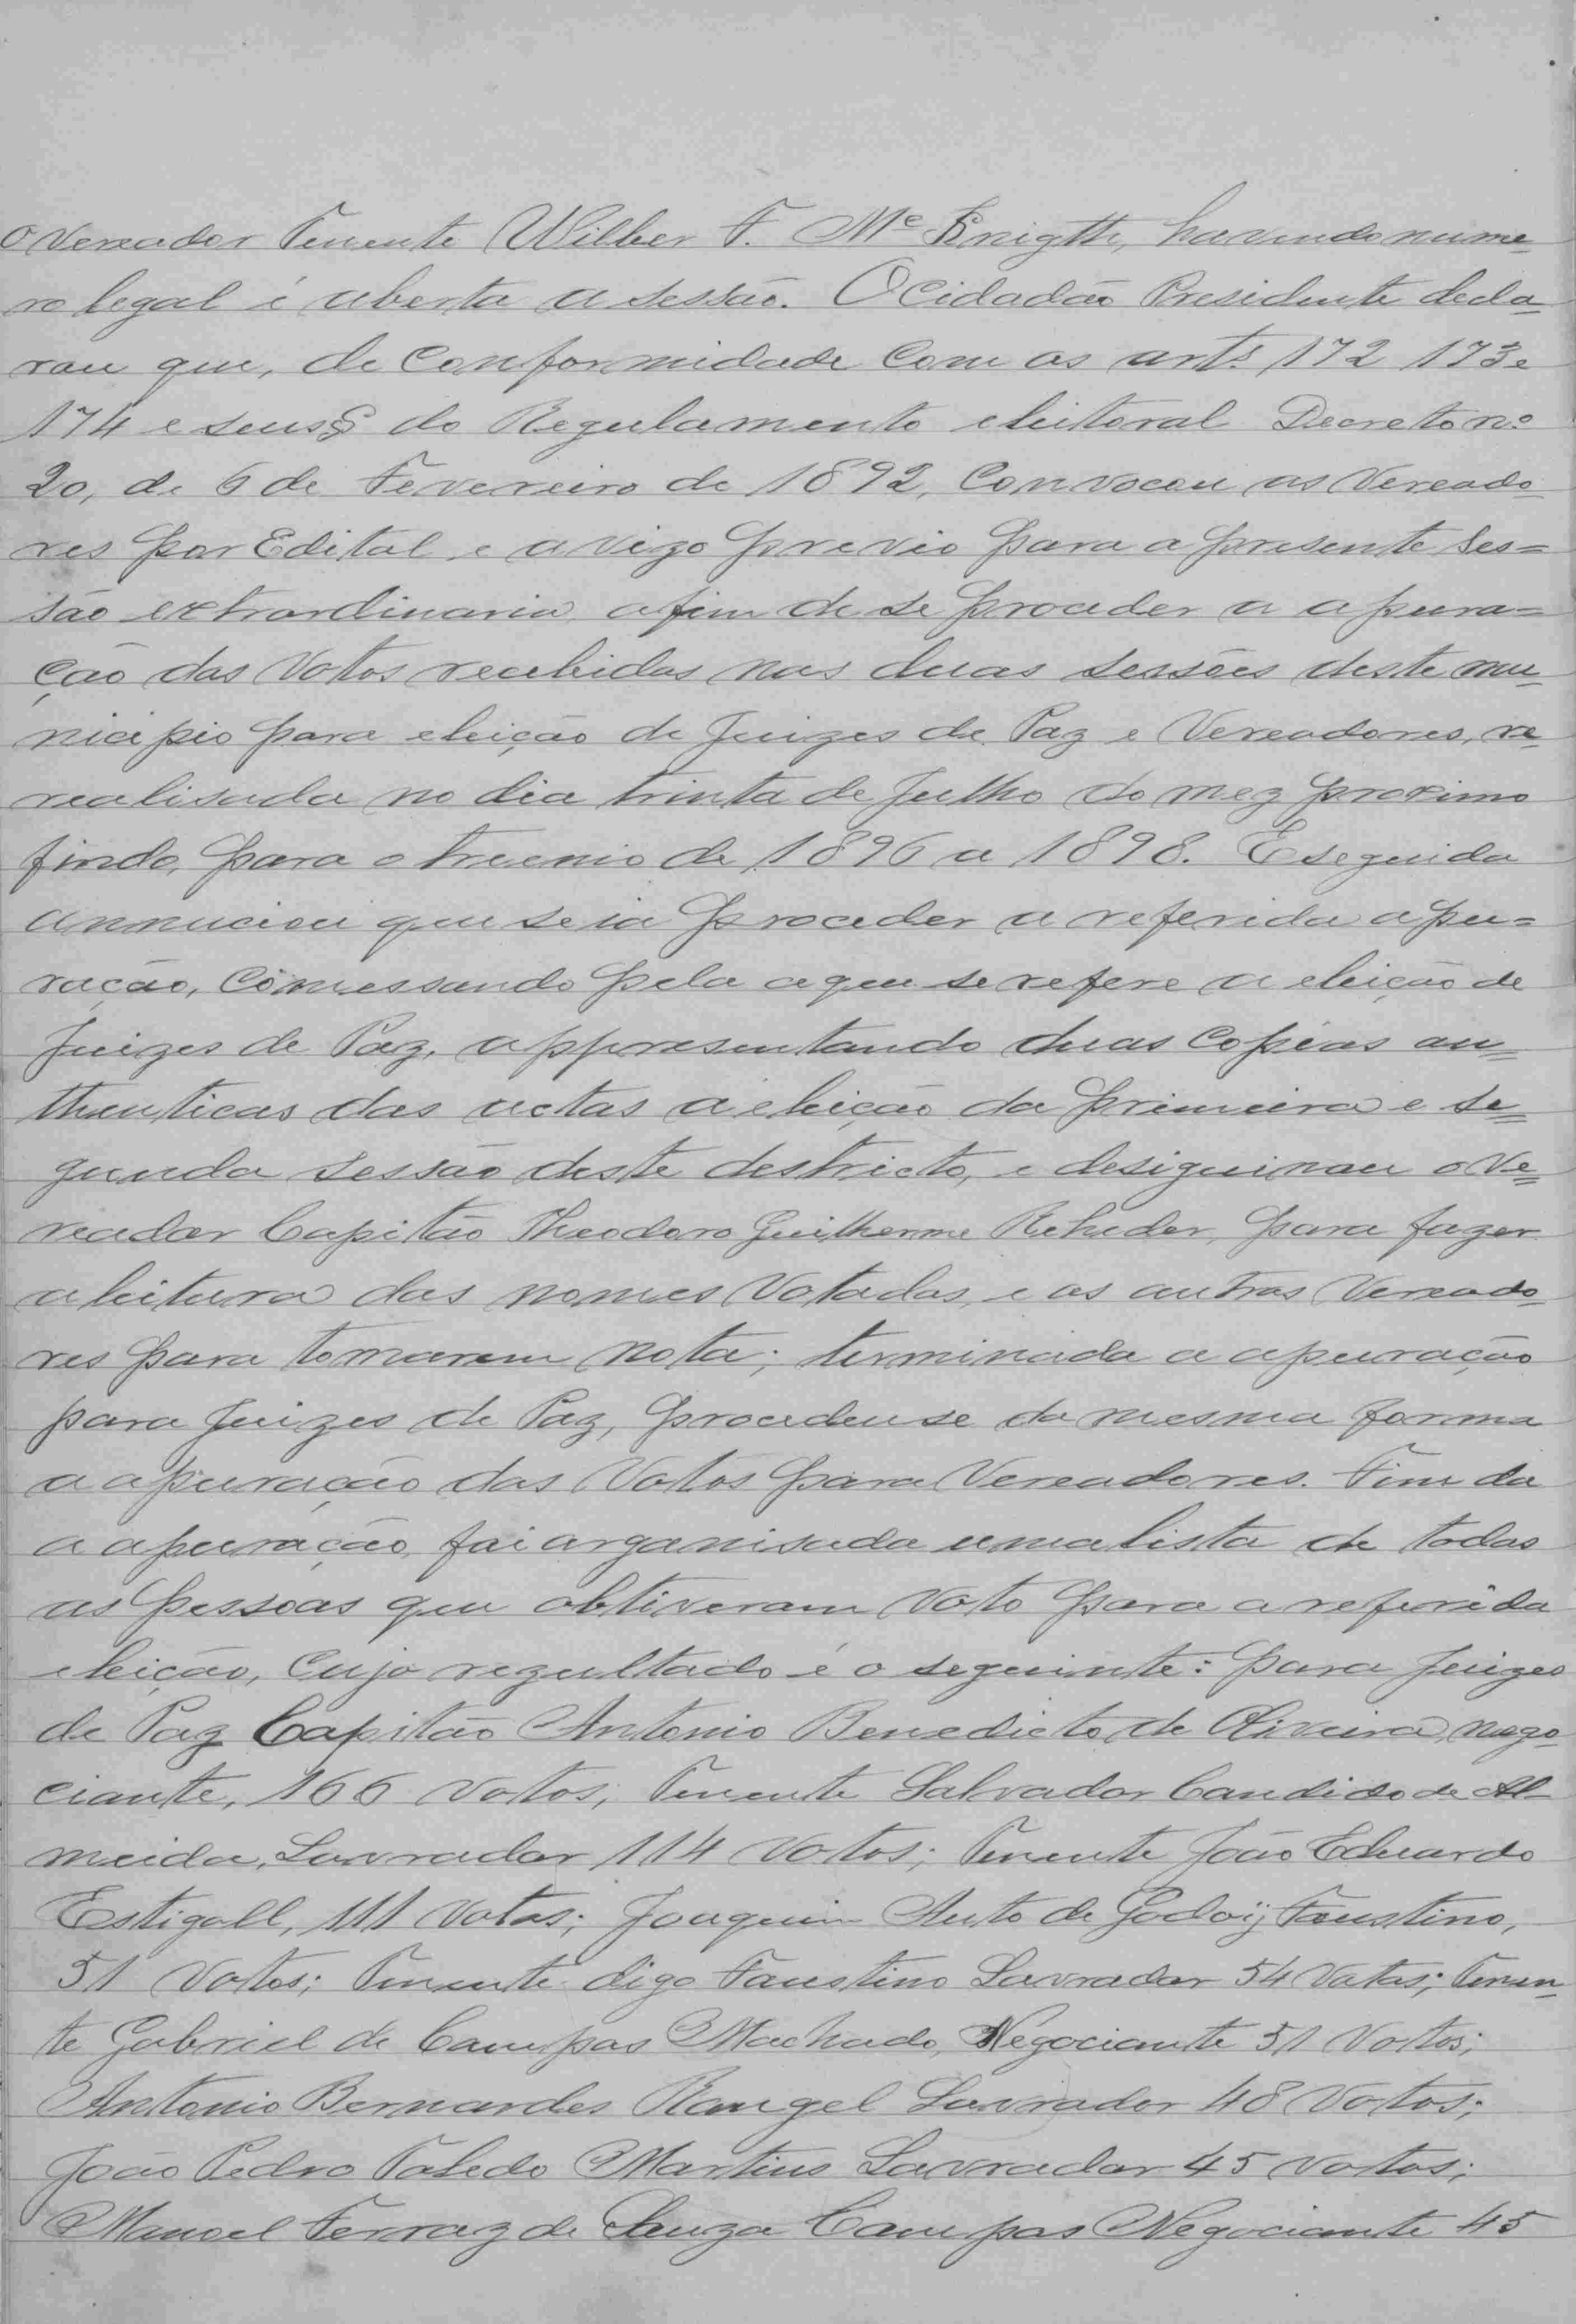 O Vereador Tenente Wilber F. Mc Knigtth, havendo nume-
ro legal é aberta a sessão. O Cidadão Presidente decla-
rou que, de conformidade com os arts. 172 173 e
174 e seus § do Regulamento eleitoral Decreto nº
20, de 6 de Fevereiro de 1892, Convocou os Vereado-
res por Edital e avizo previo para a presente Ses=
são extrordinaria afim de se proceder a apura=
ção dos Votos recebidos nas duas sessões deste mu-
nicipio para eleição de Juizes de Paz e Vereadores, re-
realisada no dia trinta de Julho do mez proximo
findo, para o treenio de 1896 a 1898. E seguida
annuciou que se ia proceder a referida apu=
ração, Comessando pela a que se refere a eleição de
Juizes de Paz, appresentando duas Copias au=
thenticas das actas a eleição da primeira e se=
gunda sessão deste destricto, e desiguinou o Ve=
reador Capitão Theodoro Guilherme Reheder, para fazer
a leitura dos nomes Votados, e os outros Vereado-
res para tomarem nota; terminada a apuração
para Juizes de Paz, procedeu se da mesma forma
a apuração dos Votos para Vereadores. Fim da
a apuração, foi organisada uma lista de todas
as pessoas que obtiveram Voto para a referida
eleição, Cujo rezultado é o seguinte: para Juizes
de Paz Capitão Antonio Benedicto de Oliveira, nego-
ciante, 166 Votos; Tenente Salvador Candido de Al-
meida, Lavrador 114 Votos; Tenente João Eduardo
Estigall, 111 Votos; Joaquim Auto de Godoÿ Faustino,
51 Votos; Tenente digo Faustino Lavrador 54 Votos; Tenen-
te Gabriel de Campos Machado, Negociante 51 Votos;
Antonio Bernardes Rangel Lavrador 48 Votos;
João Pedro Toledo Martins Lavrador 45 Votos;
Manoel Ferraz de Souza Campos Negociante 45